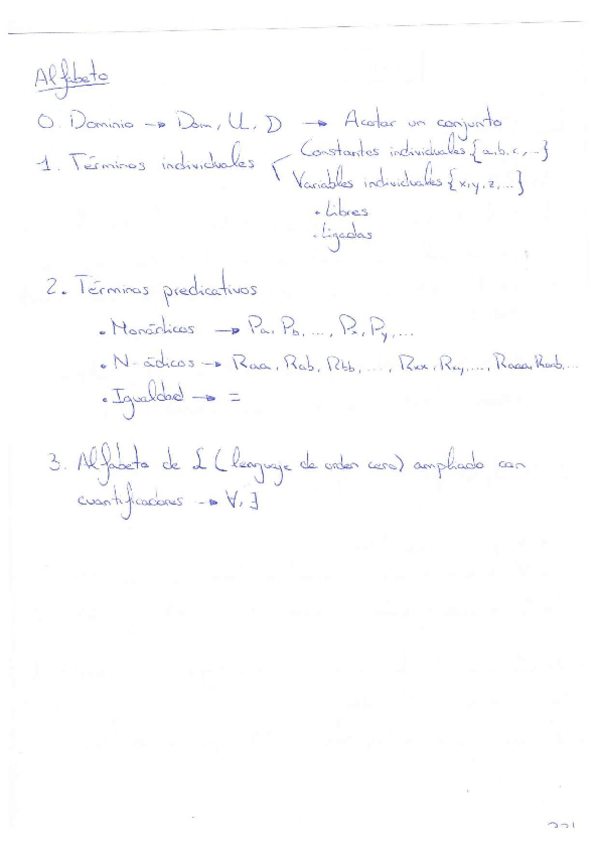 Alfabeto
0. Dominio → Dom, U, D → Acotar un conjunto
1. Términos individuales
Constantes individuales {a, b, c, ...}
Variables individuales {x, y, z, ...}
• Libres
• Ligadas
2. Términos predicativos
• Monádicos → Pa, Pb, ..., Px, Py, ...
• N-ádicos → Raa, Rab, Rbb, ..., Rxx, Rxy, ..., Raaa, Raab, ...
• Igualdad → =
3. Alfabeto de L (lenguaje de orden cero) ampliado con
cuantificadores → ∀, ∃